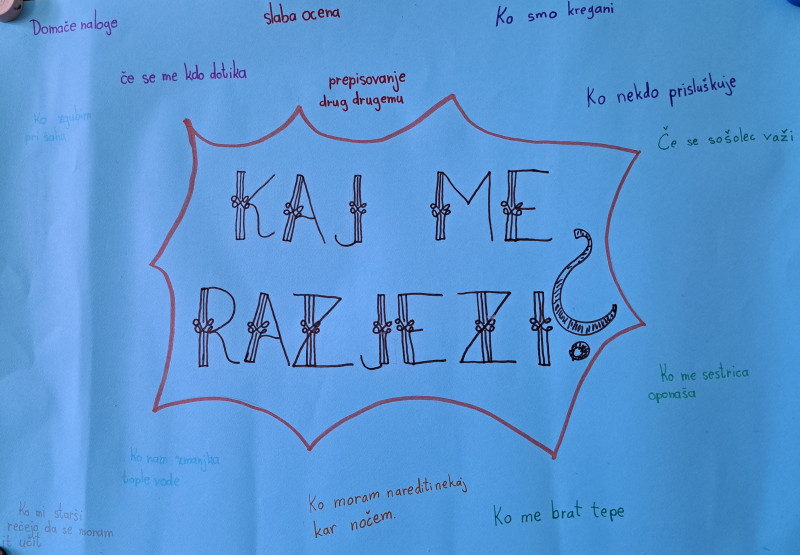 Domače naloge
slaba ocena
Ko smo kregani
če se me kdo dotika
prepisovanje
drug drugemu
Ko nekdo prisluškuje
Ko zgubim
pri šahu
Če se sošolec važi
KAJ ME
RAZJEZI?
Ko me sestrica
oponaša
Ko nam zmanjka
tople vode
Ko moram narediti nekaj
kar nočem.
Ko me brat tepe
Ko mi starši
rečejo da se moram
it učit